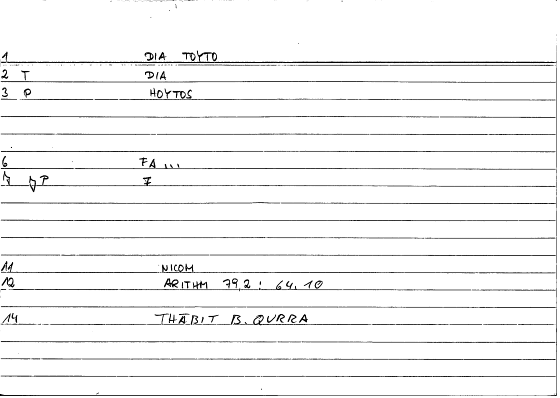 1 DIA TOYTO
2 T DIA
3 P HOYTOS
6 FA ...
P 7
11 NICOM
12 ARITHM 79,2 : 64,10
14 THĀBIT B. QURRA